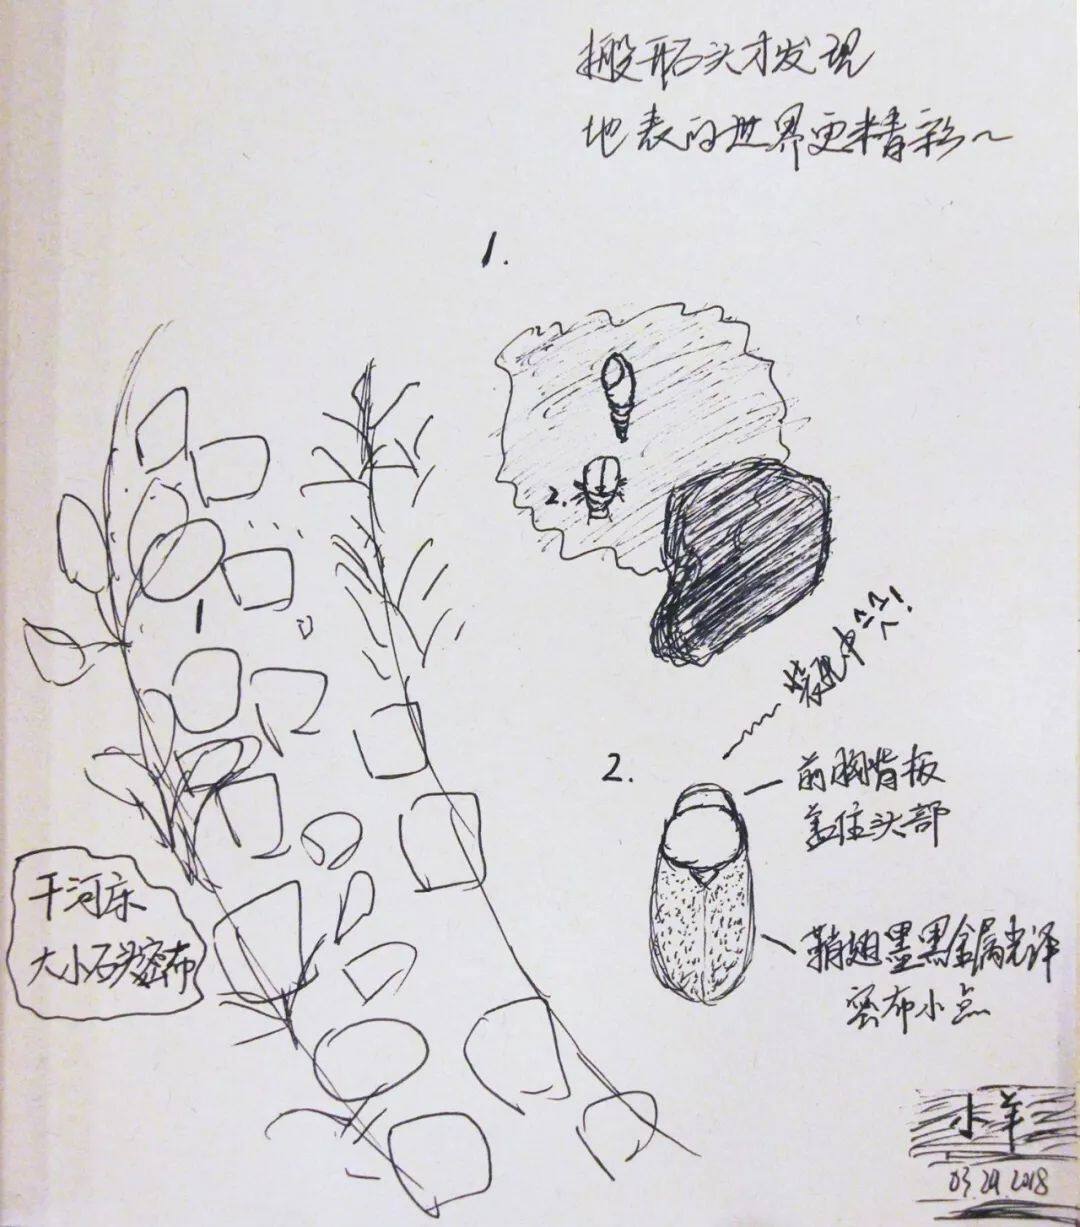 搬开石头才发现
地表的世界更精彩~
1.
2.
1
2.
前胸背板
盖住头部
鞘翅墨黑金属光泽
密布小点
干河床
大小石头密布
小羊
03.29.2018